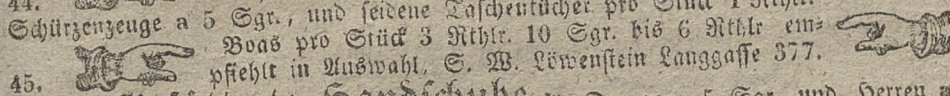 44.
Schürzenzeuge a 5 Sgr., und seidene Taschentücher pro Stück 1 Rthlr.
Boas pro Stück 3 Rthlr. 10 Sgr. bis 6 Rthlr em⸗
45. pfiehlt in Auswahl, S. W. Löwenstein Langgasse 377.
Handschuhe 5 Sgr. und Herren